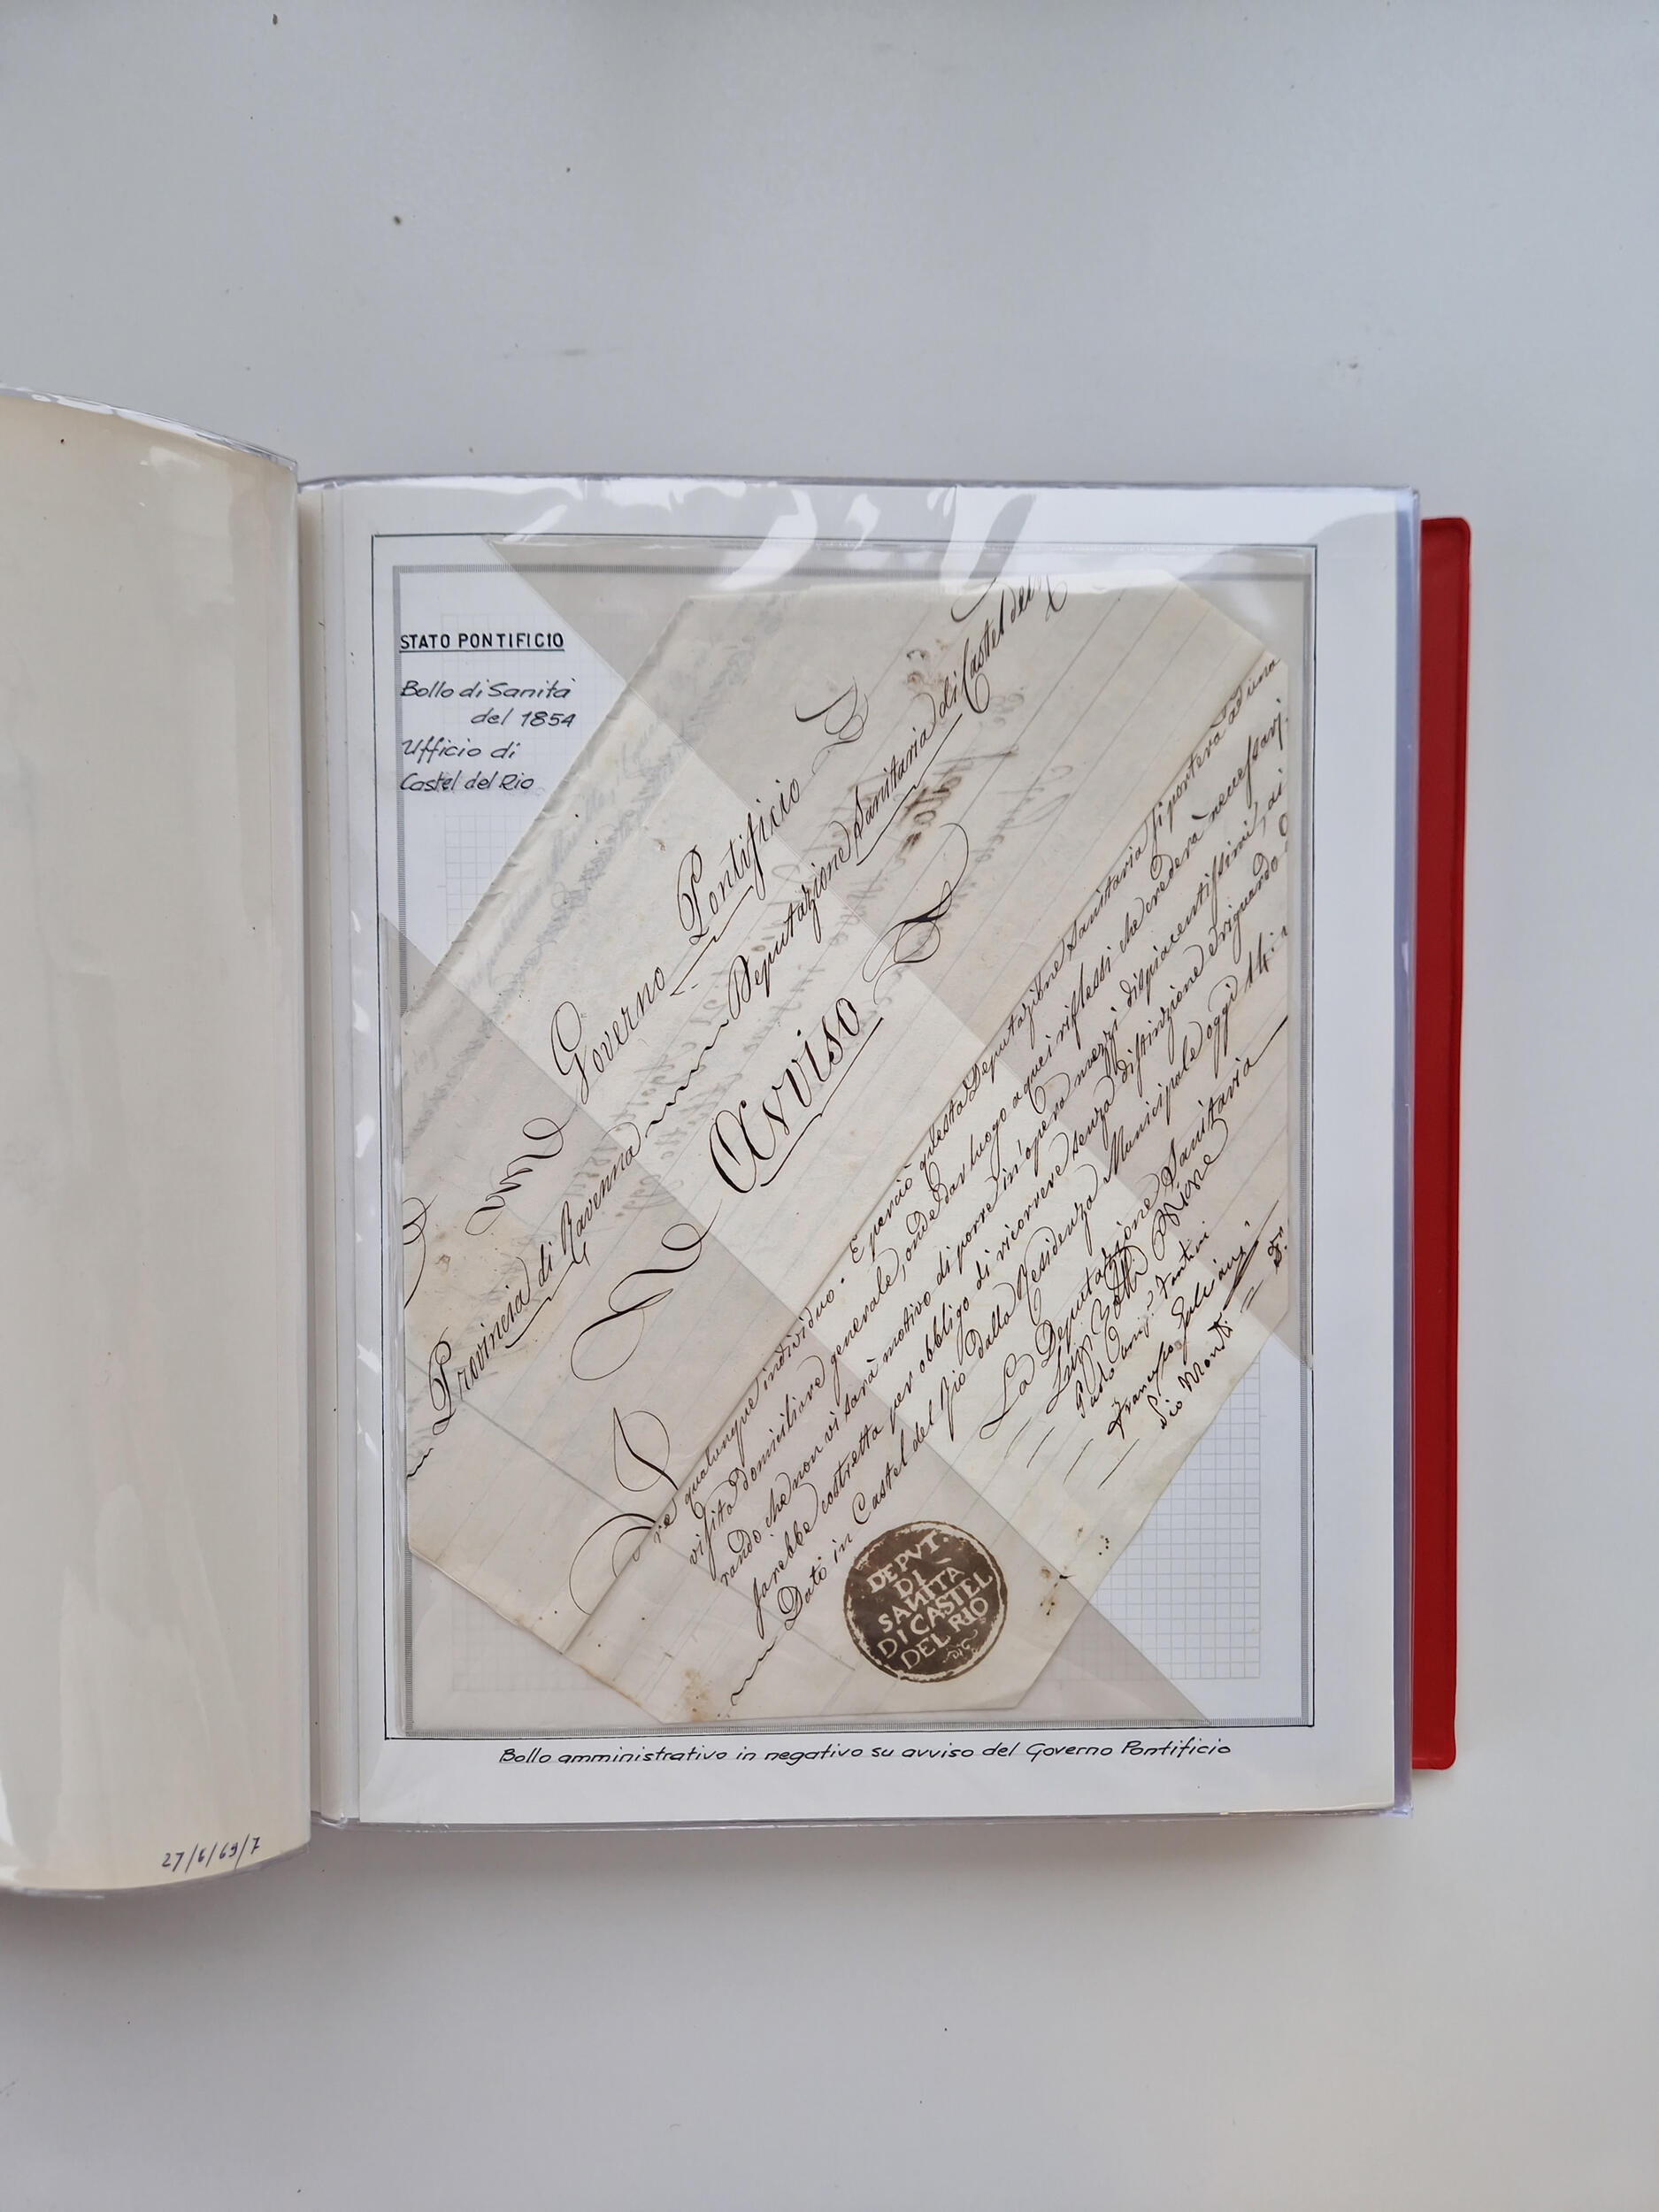 STATO PONTIFICIO
Bollo di Sanità
del 1854
Ufficio di
Castel del Rio
Governo Pontificio
Provincia di Ravenna Deputazione Sanitaria di Castel del
Avviso
re qualunque individuo. E perciò questa Deputazione Sanitaria si porterà ad una
visita domiciliare generale, onde dar luogo a quei riflessi che crederà necessarj.
rando che non vi sarà motivo di porre in opera mezzi dispiacentissimi, di
sarebbe costretta per obbligo di ricorrere senza distinzione e riguardo
Dato in Castel del Rio dalla Residenza Municipale oggi 14:
La Deputazione Sanitaria
DEPUT.
DI
SANITÀ
DI CASTEL
DEL RIO
Bollo amministrativo in negativo su avviso del Governo Pontificio
27/6/69/7